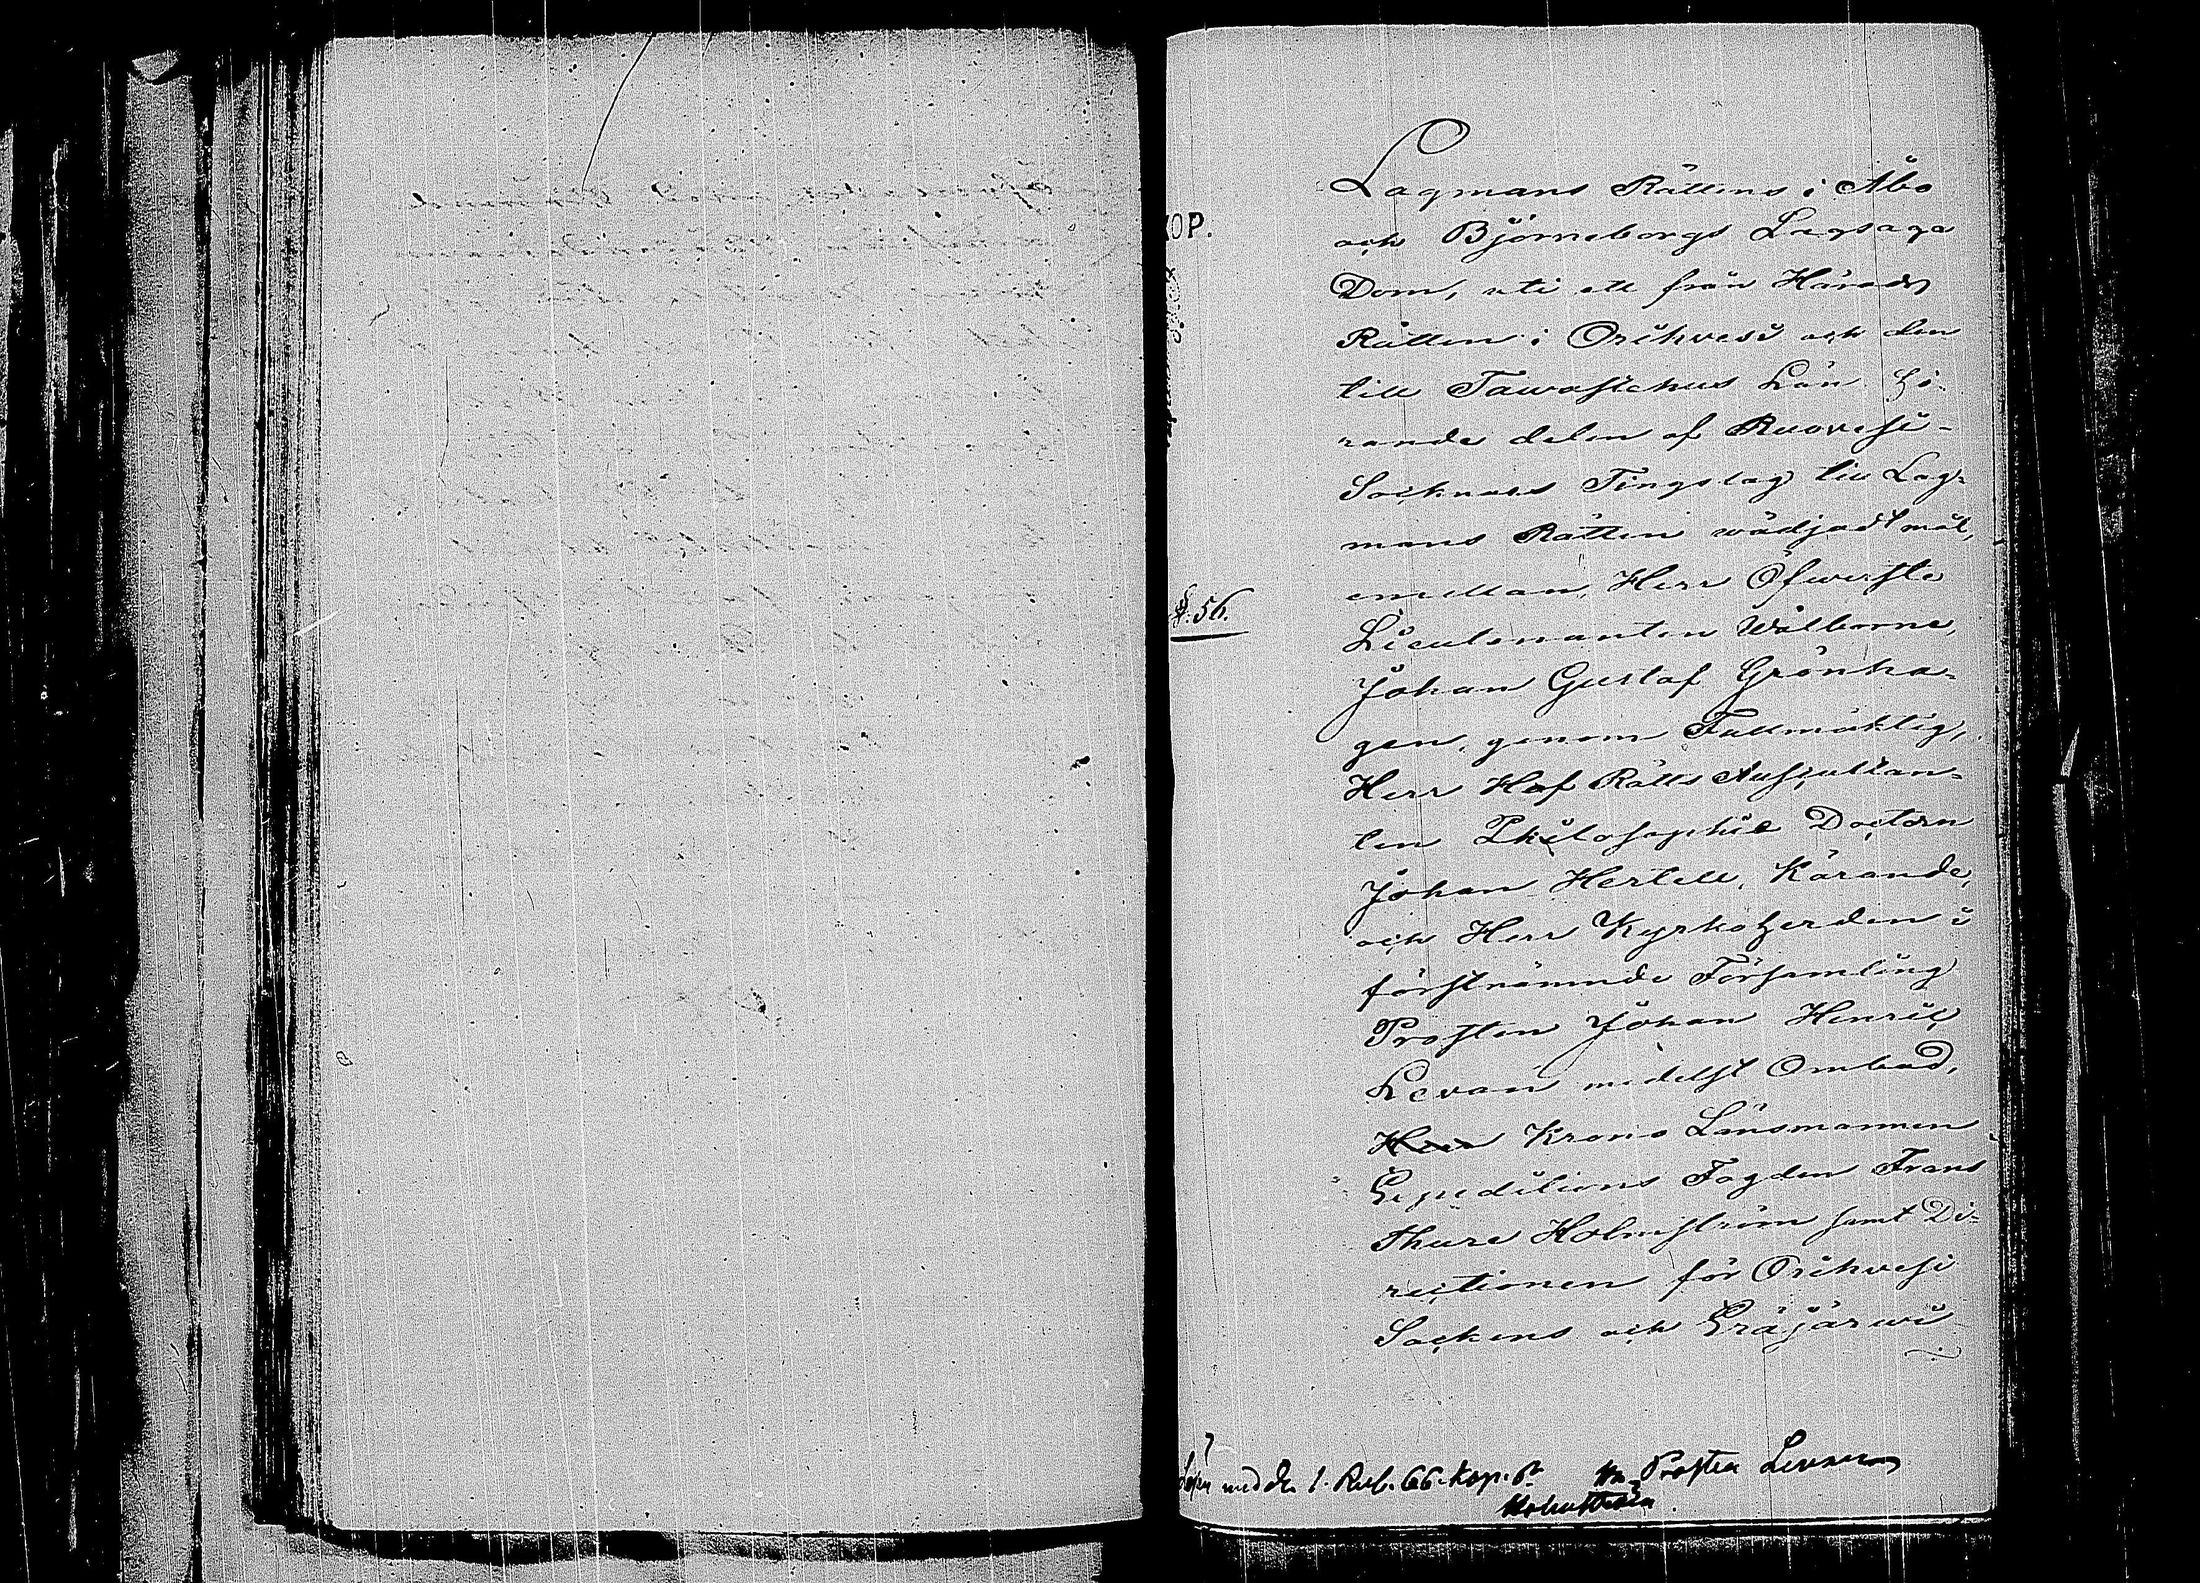 KOP.
§. 56.
Lagmans Rättens i Åbo
och Björneborgs Lagsaga
Dom, uti ett från Härads
Rätten i Orihvesi och den
till Tawastehus Län hö-
rande delen af Ruovesi-
Socknars Tingslag till Lag-
mans Rätten wädjadt mål,
emellan, Herr Öfwerste
Lieutenanten Wälborne,
Johan Gustaf Grönha-
gen, genom Fullmäktig,
Herr Hof Rätts Auscultan-
ten Philosophie Doctorn
Johan Hertell, Kärande,
och Herr Kyrkoherden i
förstnämnde Församling
Prosten Johan Henric
Levan medelst Ombud,
Herr Krono Länsmannen
Expeditions Fogden Frans
Thure Holmström samt Di-
rectionen för Orihvesi
Sockens och Eräjärwi
med dr 1. Rub. 66. Kop. Sr Prosten Levan
Holmström